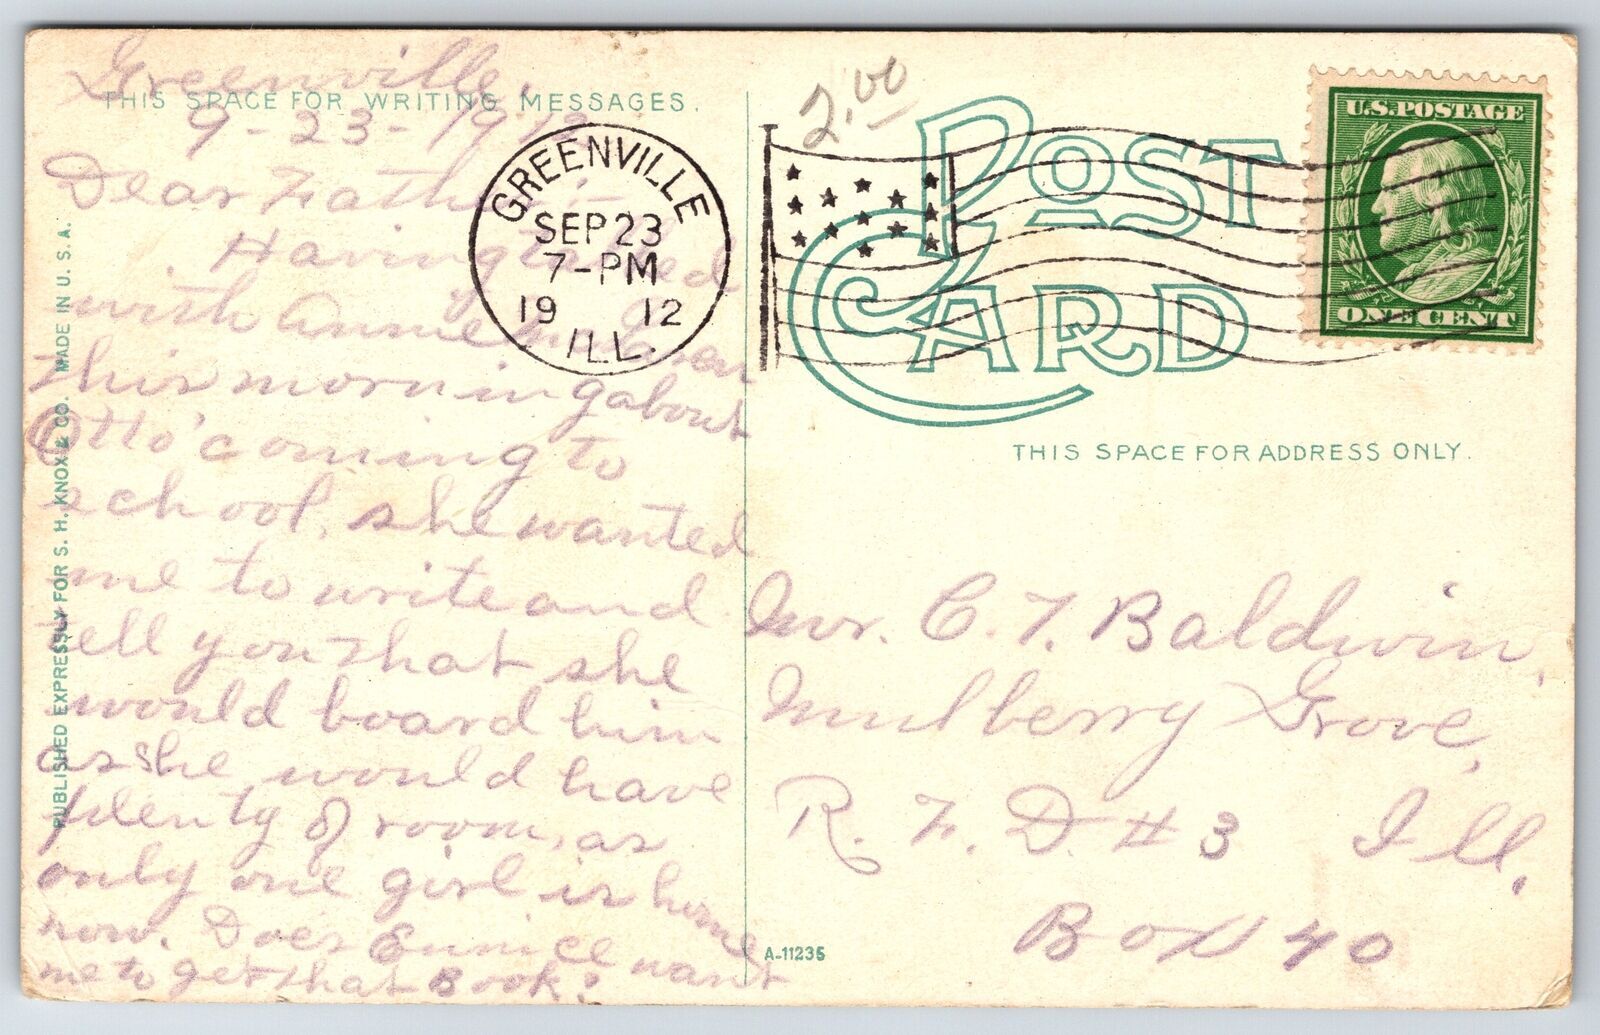 Greenville,
THIS SPACE FOR WRITING MESSAGES.
9-23-1912
Dear Father:-
Having talked
with Annie
this morning about
Otto'coming to
school, she wanted
me to write and
tell you that she
would board him
as she would have
plenty of room, as
only one girl is home
now. Does Eunice want
me to get that Book?
PUBLISHED EXPRESSLY FOR S. H. KNOX & CO. MADE IN U. S. A.
GREENVILLE
SEP 23
7-PM
19 12
ILL.
2.00
POST
CARD
U.S. POSTAGE
ONE CENT
THIS SPACE FOR ADDRESS ONLY.
Mr. C. F. Baldwin,
Mulberry Grove,
R. F. D. # 3 Ill.
Box 40
A-11235